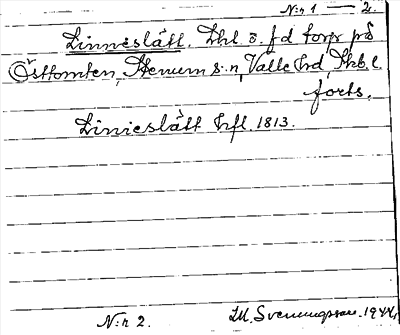 N:r 1 — 2.
Linneslätt. Lhl. o. f d torp på
Östtomten, Stenum s:n, Valle hrd, Skb. l.
forts.
Linieslätt hfl. 1813.
N:r 2. M. Svenungsson. 1944.